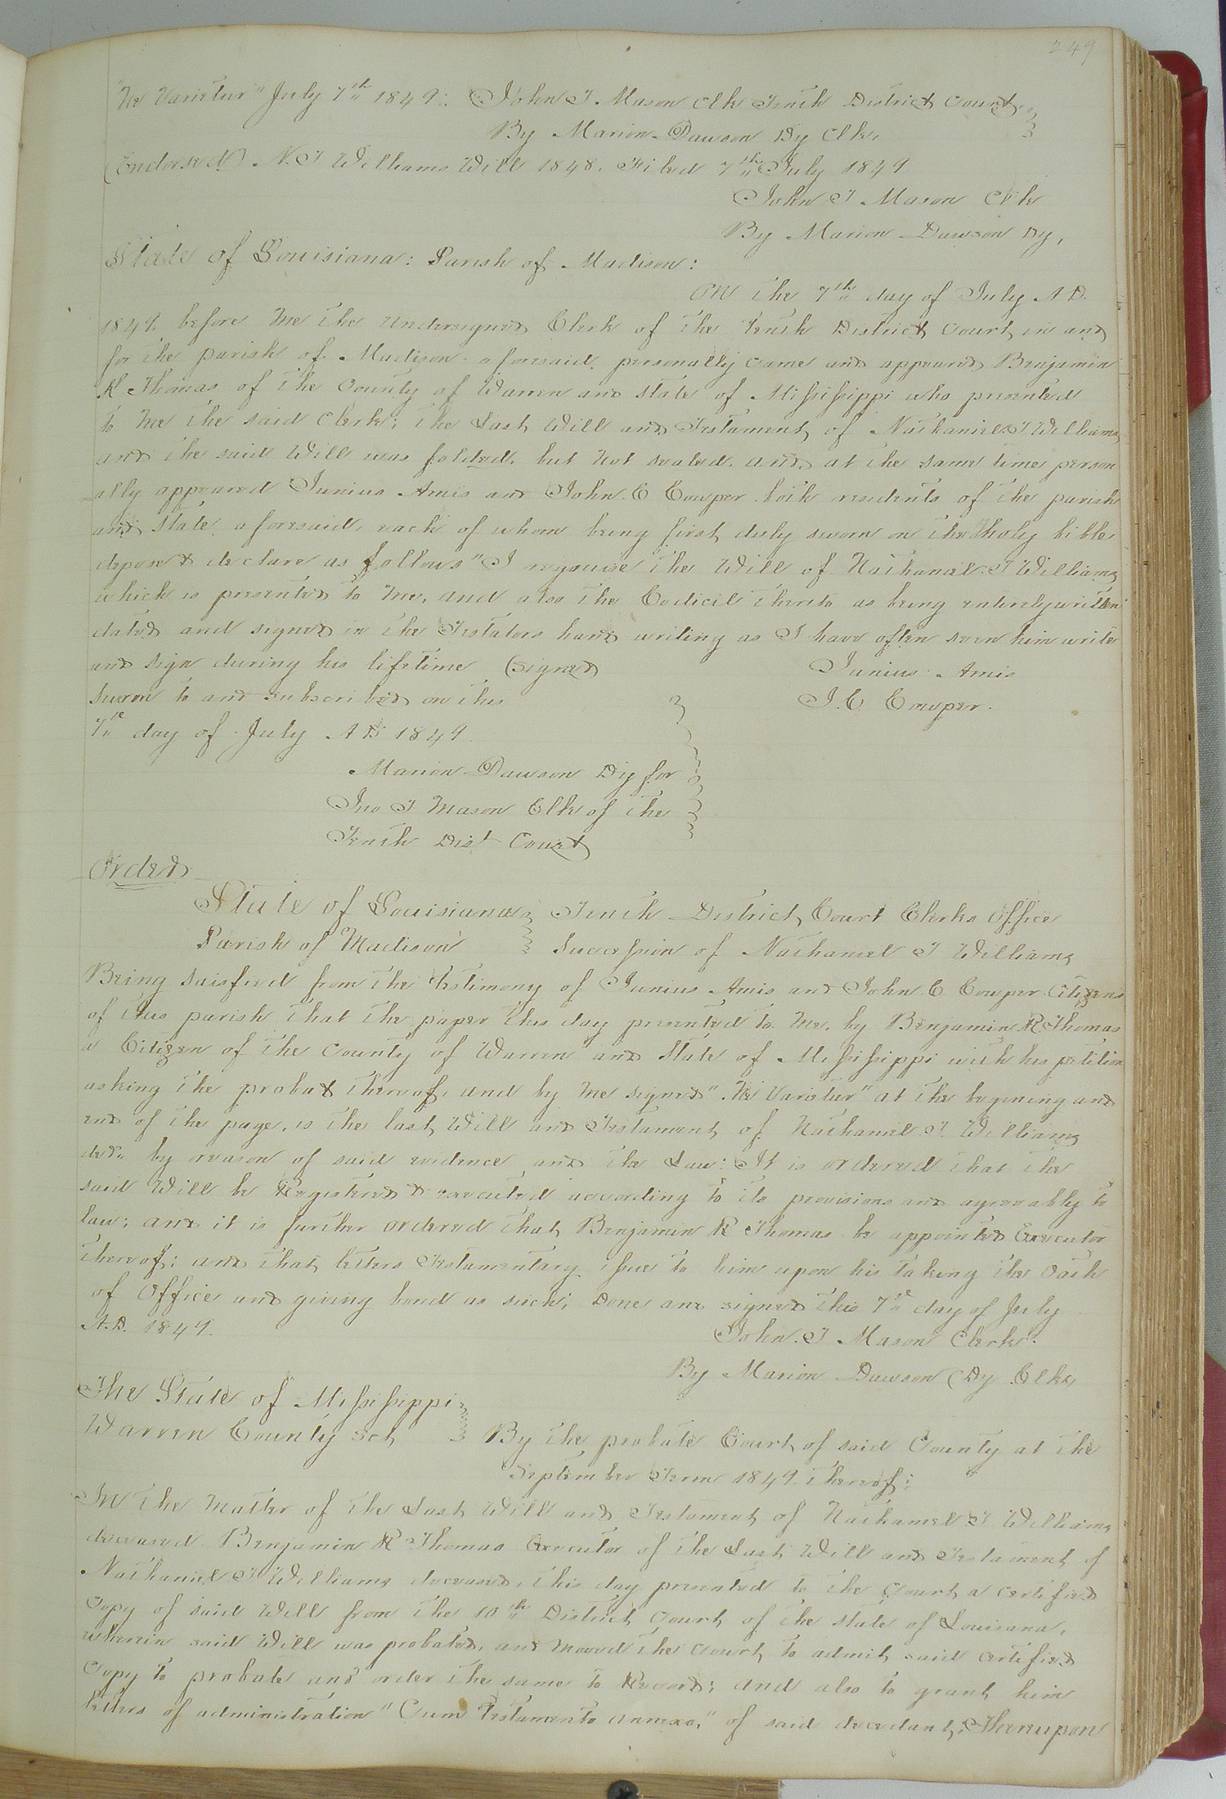 249
"Ne Varietur" July 7th 1849: John T. Mason Clk Tenth District Court
By Marion Dawson Dy Clk,
(Endorsed) N. T Williams Will 1848. Filed 7th July 1849
John T Mason Clk
By Marion Dawson Dy,
State of Louisiana: Parish of Madison:
On the 7th day of July A D.
1849. before me the undersigned Clerk of the Tenth District Court in and
for the parish of Madison aforesaid, personally came and appeared Benjamin
R Thomas, of the County of Warren and State of Mississippi who presented
to me the said Clerk; the Last Will and Testament of Nathaniel T Williams
and the said Will was folded, but not sealed. and at the same time person
ally appeared Junius Amis and John C Cowper both residents of the parish
and State aforesaid, each of whom being first duly sworn on the Holy bible
depose & declare as follows "I recognise the Will of Nathaniel T Williams
which is presented to me, and also the Codicil thereto as being entirely written
dated and signed in the Testators hand writing as I have often seen him write
and sign during his lifetime (Signed Junius Amis
Sworn to and subscribed on this J. C Cowper.
7th day of July A D 1849
Marion Dawson Dy for
Jno T Mason Clk of the
Tenth Dist Court
Order
State of Louisiana Tenth District Court Clerks Office
Parish of Madison Succession of Nathaniel T Williams
Being saisfied from the Testimony of Junius Amis and John C Cowper Citizens
of this parish that the paper this day presented to me, by Benjamin R Thomas
a Citizen of the County of Warren and State of Mississippi with his petition
asking the probat thereof, and by me signed "Ne Varietur" at the begining and
end of the page, is the last Will and Testament of Nathaniel T. Williams
decd. by reason of said evidence and the Law: It is ordered that the
said Will be Registered & executed according to its provisions and agreeably to
law; and it is further ordered that Benjamin R Thomas be appointed Executor
thereof: and that letters Testamentary issue to him upon his taking the Oath
of Office and giving bond as such; Done and signed this 7th day of July
A.D. 1849. John T Mason Clerk.
By Marion Dawson Dy Clk,
The State of Mississippi
Warren County Sct By the probate Court of said County at the
September Term 1849 thereof:
In the Matter of the Last Will and Testament of Nathaniel T Williams
deceased Benjamin R Thomas Executor of the Last Will and Testament of
Nathaniel T Williams deceased, this day presented to the Court a certified
Copy of said Will from the 10th District Court of the State of Louisiana,
wherein said Will was probated, and moved the Court to admit said certified
Copy to probate and order the same to Record; and also to grant him
letters of administration "Cum Testamento annexo," of said decedant, Thereupon